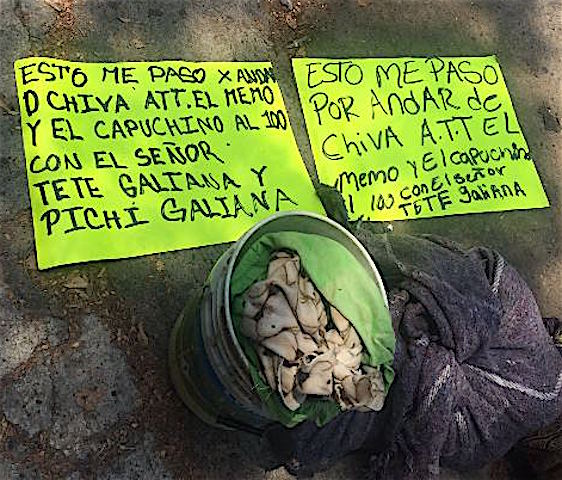 ESTO ME PASO X ANDAR
D CHIVA ATT. EL MEMO
Y EL CAPUCHINO AL 100
CON EL SEÑOR.
TETE GALIANA Y
PICHI GALIANA
ESTO ME PASO
POR ANDAR de
CHIVA A.T.T EL
MEMO Y El capuchino
al 100 con El señor
TETE galiANA